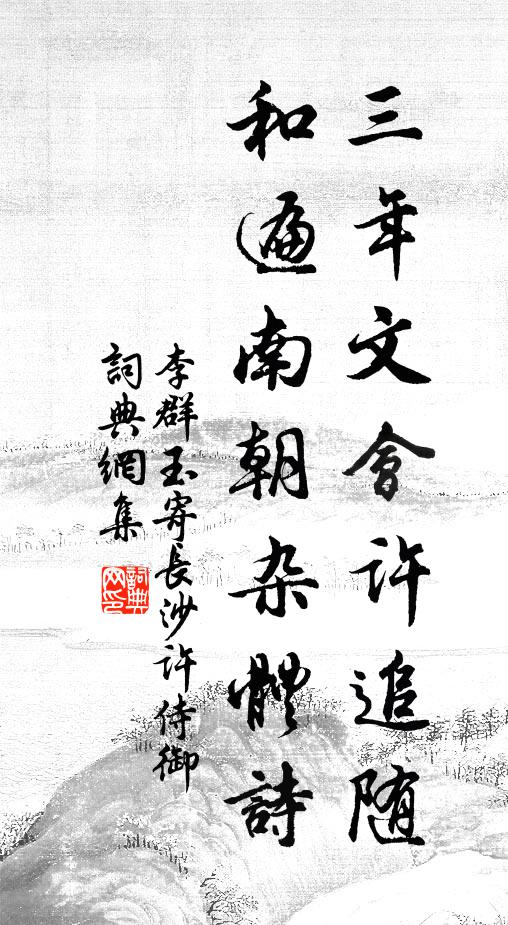 三年文會许追随
和遍南朝杂體詩
李群玉寄長沙许侍御
詞典網集
詞典网印